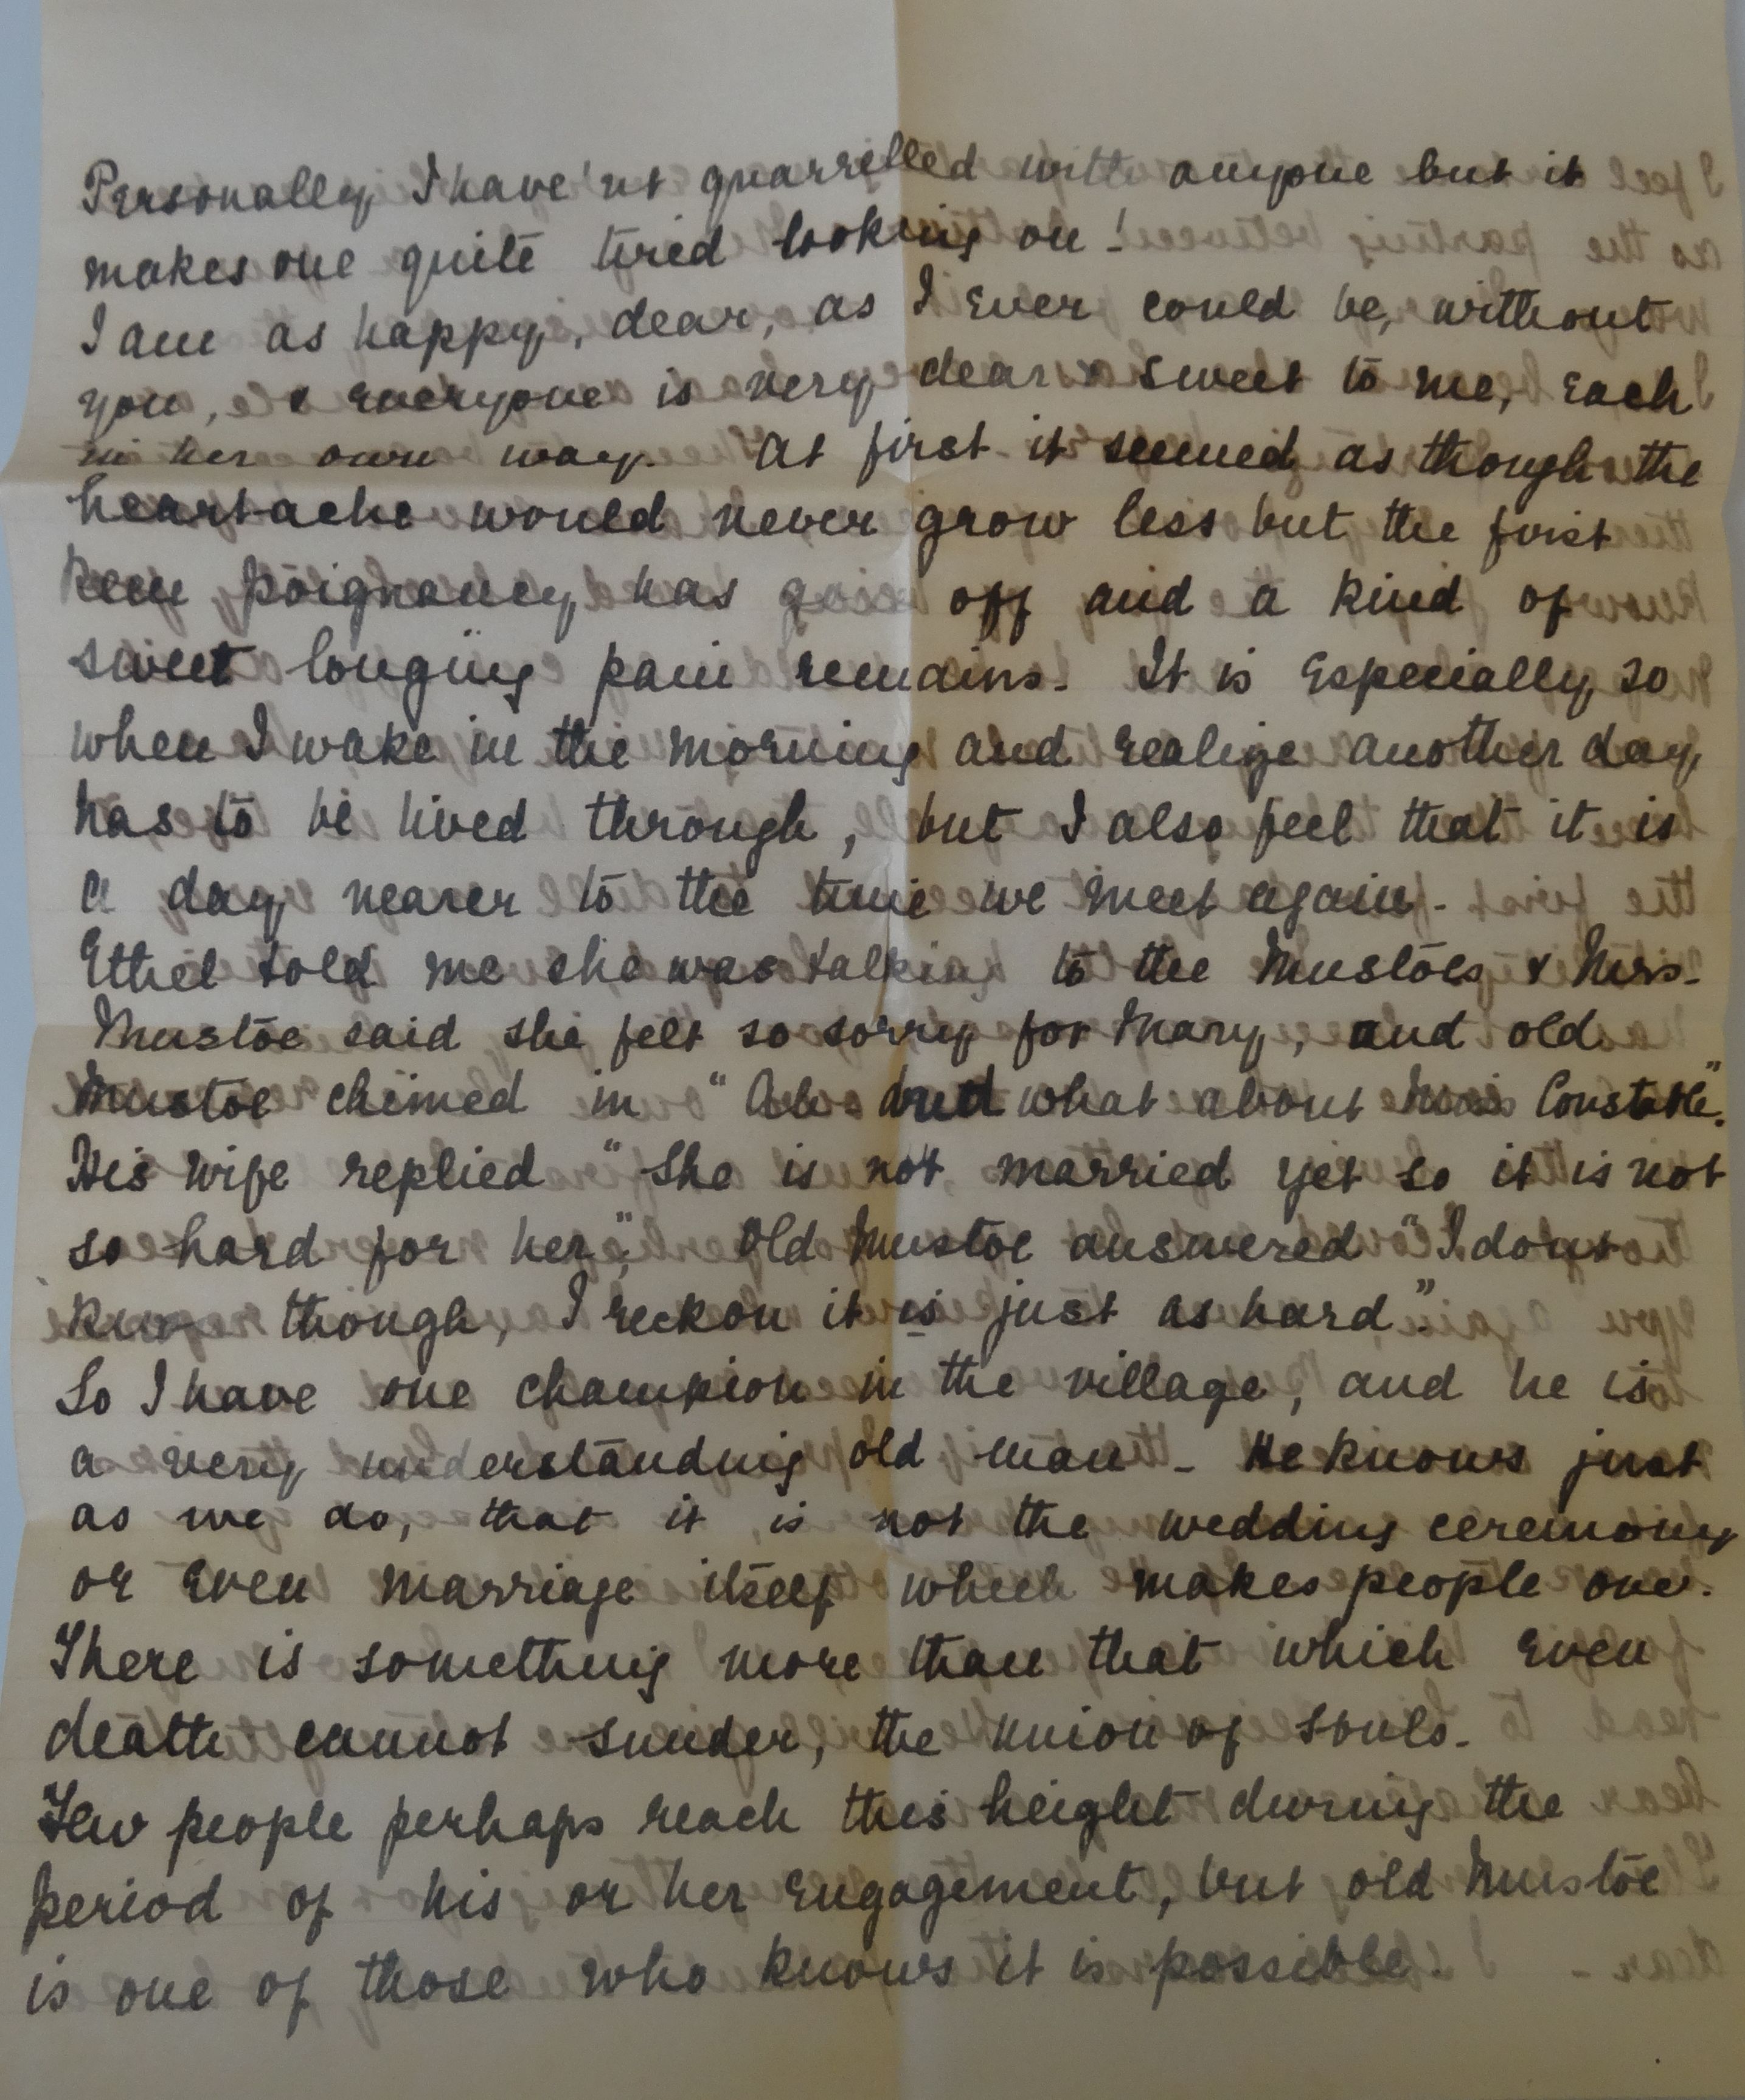 Personally I have'nt quarrelled with anyone but it
makes one quite tired looking on!
I am as happy, dear, as I ever could be, without
you, & everyone is very dear & sweet to me, each
in her own way. At first it seemed as though the
heartache would never grow less but the first
keen poignancy has gone off and a kind of
sweet longing pain remains. It is especially so
when I wake in the morning and realize another day
has to be lived through, but I also feel that it is
a day nearer to the time we meet again.
Ethel told me she was talking to the Mustoes & Mrs.
Mustoe said she felt so sorry for Mary, and old
Mustoe chimed in "Ah and what about Miss Constable".
His wife replied "She is not married yet so it is not
so hard for her". Old Mustoe answered "I dont
know though, I reckon it is just as hard".
So I have one champion in the village, and he is
a very understanding old man - He knows just
as we do, that it is not the wedding ceremony
or even marriage itself which makes people one.
There is something more than that which even
death cannot sunder, the union of souls.
Few people perhaps reach this height during the
period of his or her engagement, but old Mustoe
is one of those who knows it is possible.